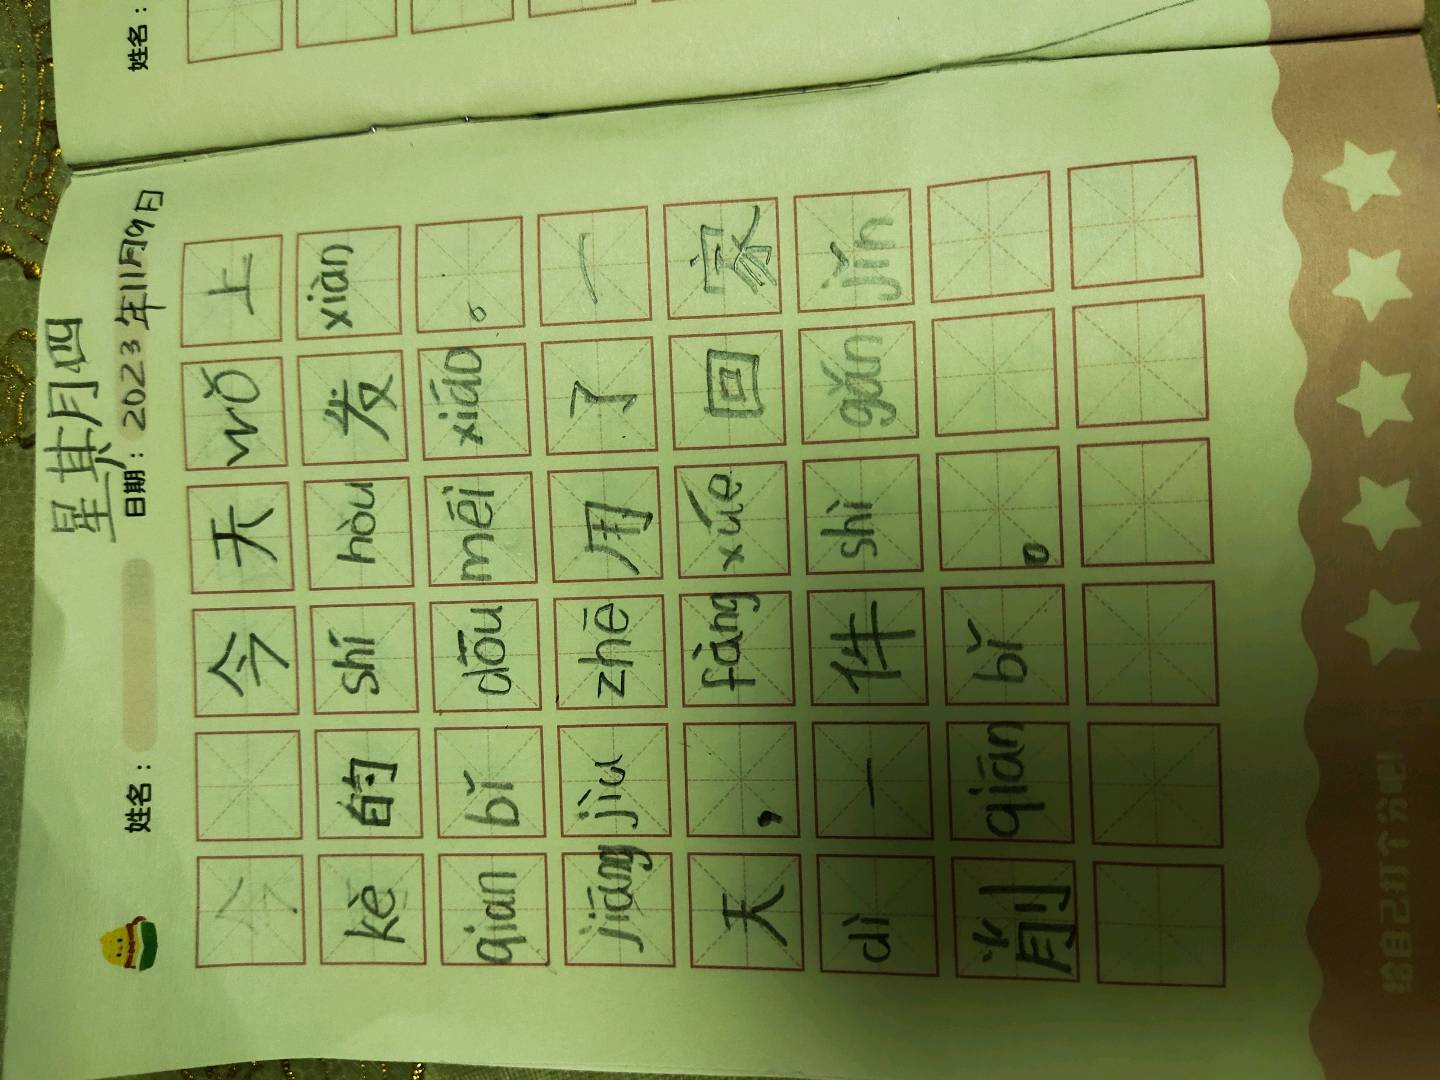 姓名：
星期四
姓名： 日期：2023年11月9日
今 今天wǒ上
kè的shí hòu发xiàn
qian bǐ dōu méi xiáo。
jiáng jìu zhē用了一
天，fàng xúe回家
dì一件shì gǎn jǐn
削qiān bǐ。
给自己打个分吧!